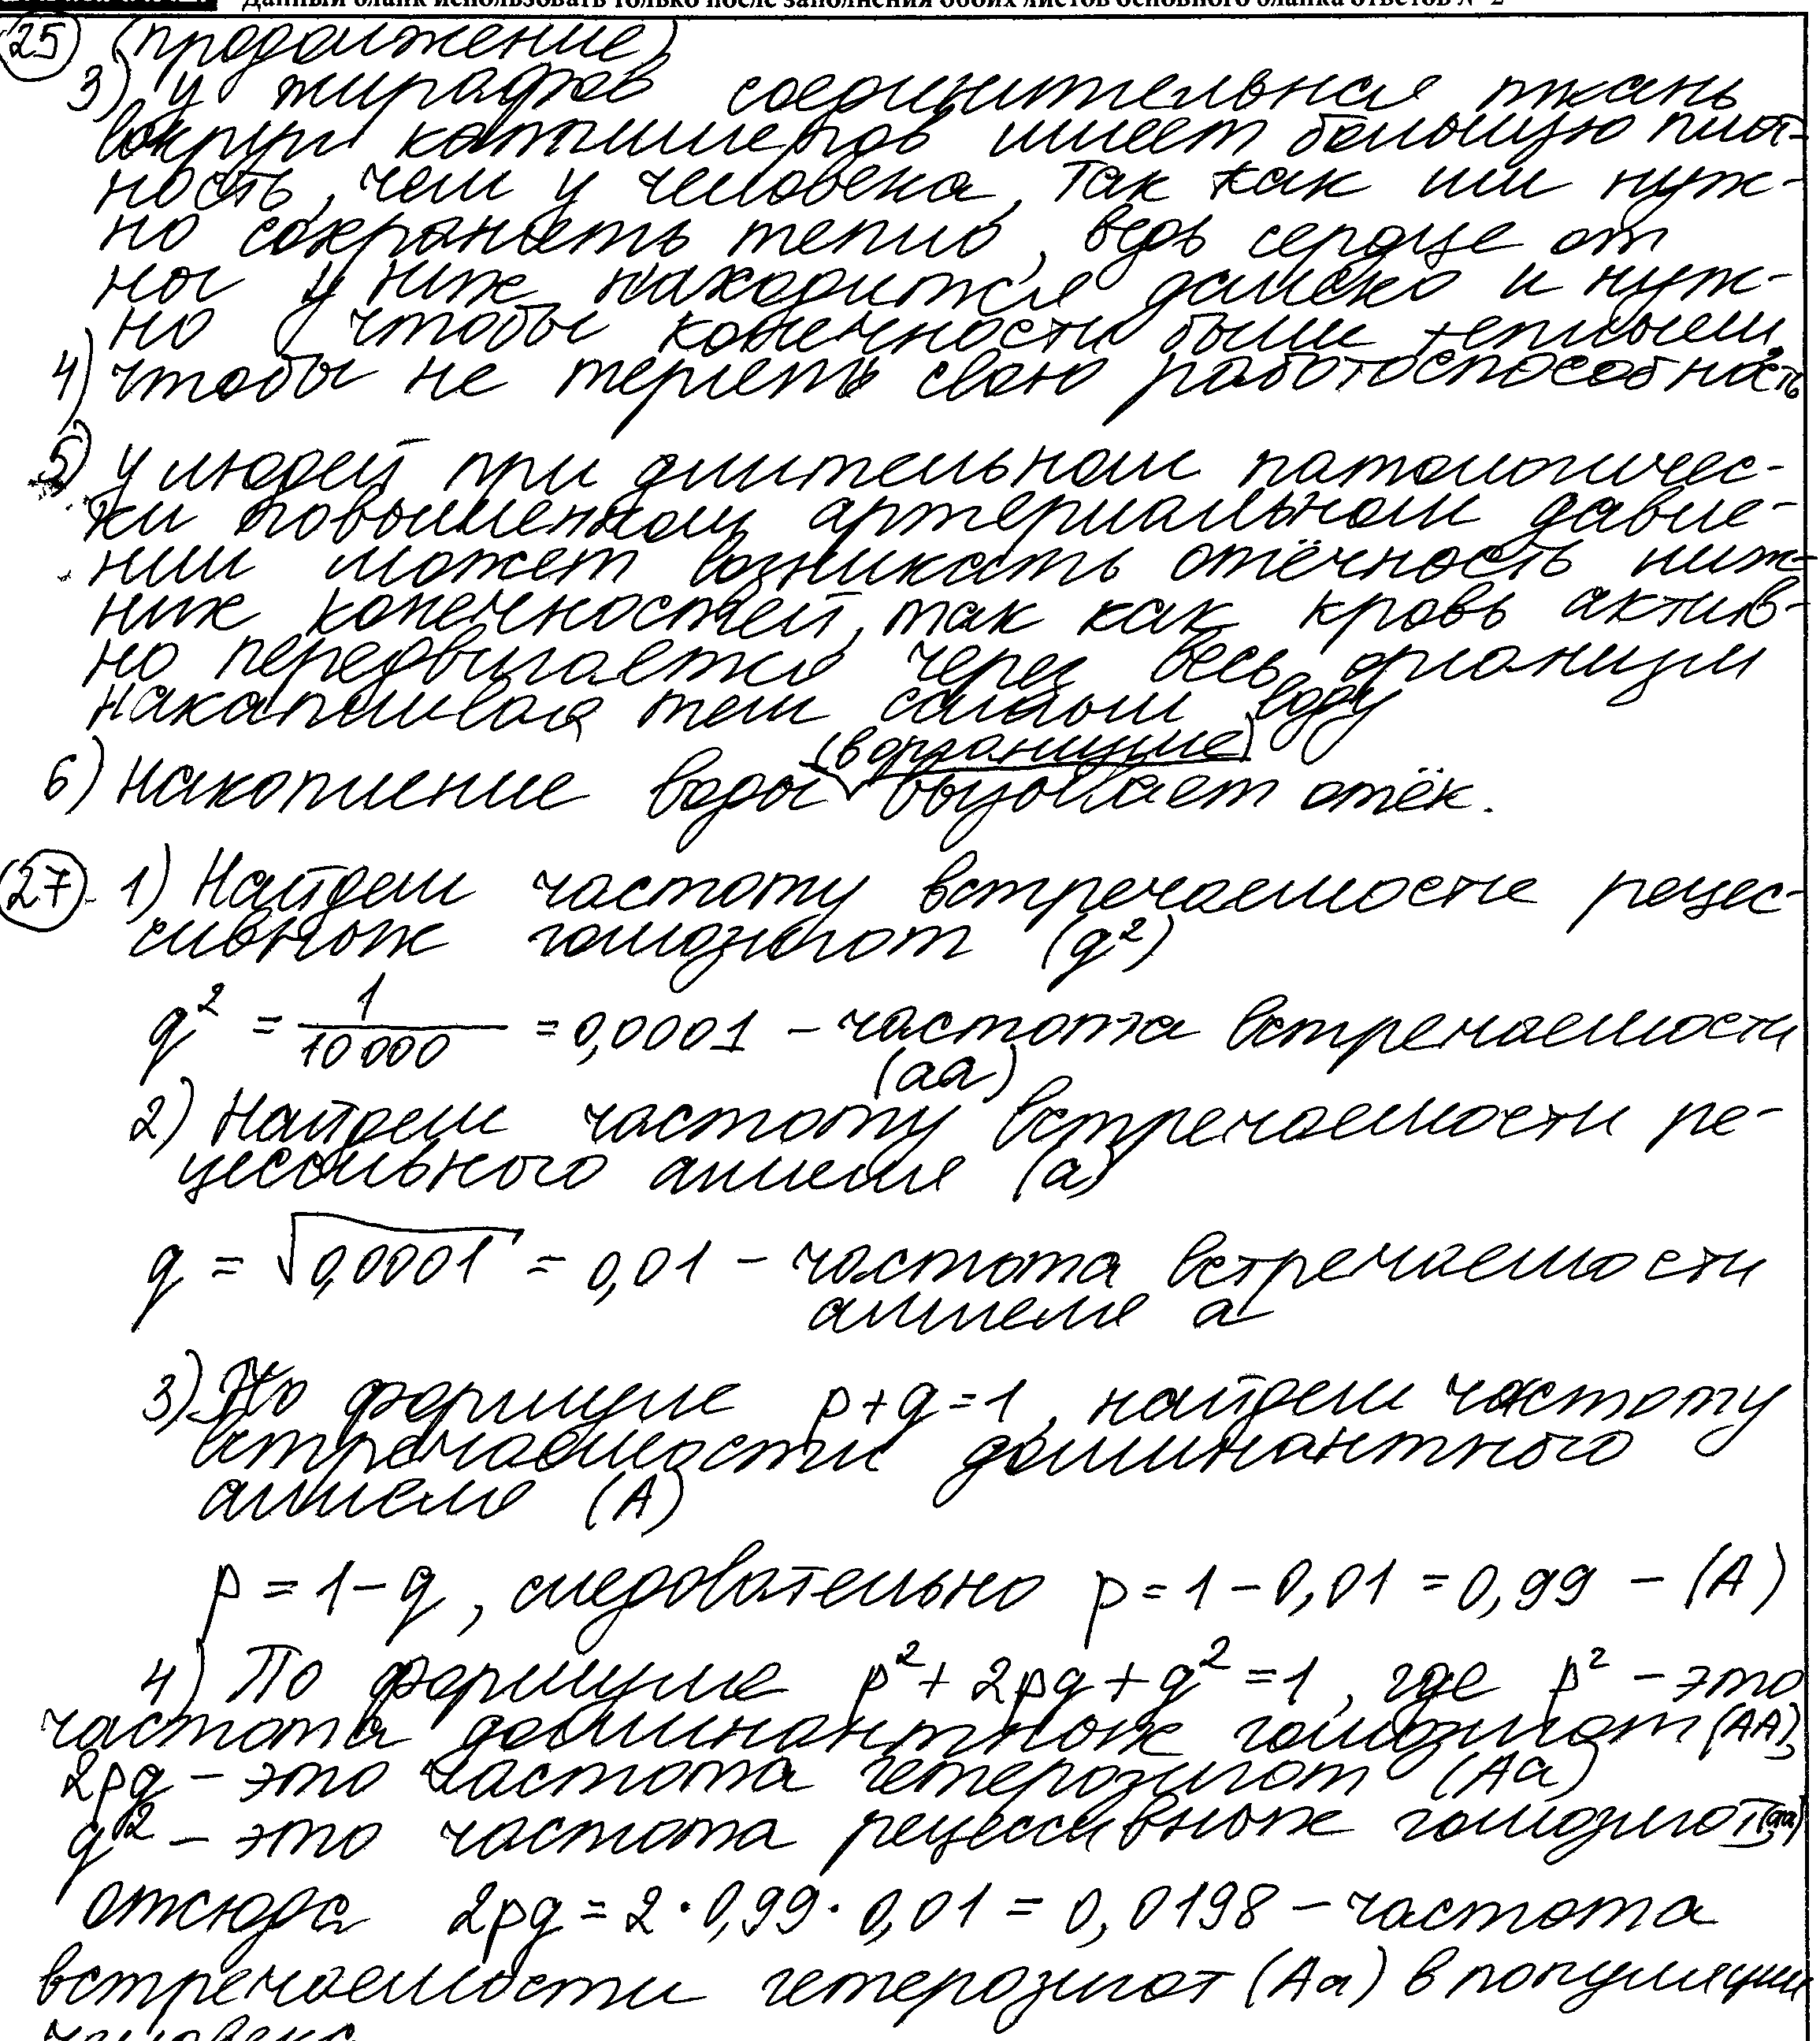 Данный бланк использовать только после заполнения обоих листов основного бланка ответов № 2
25 (продолжение)
3) у жирафов соединительная ткань
вокруг капилляров имеет большую плот-
ность, чем у человека, так как им нуж-
но сохранять тепло, ведь сердце от
ног у них находится далеко и нуж-
но чтобы конечности были теплыми,
4) чтобы не терять свою работоспособность
5) у людей при длительном патологичес-
ки повышенном артериальном давле-
нии может возникать отёчность ниж-
них конечностей, так как кровь актив-
но передвигается через весь организм
накапливая тем самым воду
(в организме)
6) Накопление воды вызывает отёк.
27. 1) Найдем частоту встречаемости рецес-
сивных гомозигот (q²)
q² = 1/10 000 = 0,0001 – частота встречаемости
(аа)
2) Найдем частоту встречаемости ре-
цессивного аллеля (а)
q = √0,0001 = 0,01 – частота встречаемости
аллеля а
3) По формуле p+q=1, найдем частоту
встречаемости доминантного
аллеля (А)
p = 1 – q, следовательно p = 1 – 0,01 = 0,99 – (А)
4) По формуле p² + 2pq + q² = 1, где p² – это
частота доминантных гомозигот (АА),
2pq – это частота гетерозигот (Аа)
q² – это частота рецессивных гомозигот (аа)
отсюда 2pq = 2 · 0,99 · 0,01 = 0,0198 – частота
встречаемости гетерозигот (Аа) в популяции
человека